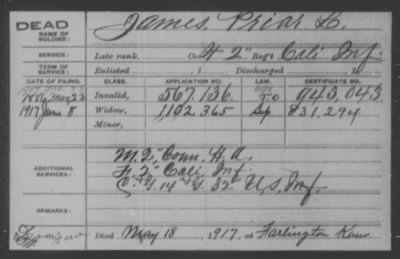 DEAD
NAME OF SOLDIER: James, Friar L.
SERVICE: Late rank, Co. F 2" Reg't Cali Inf.
TERM OF SERVICE: Enlisted , 1 Discharged , 1
DATE OF FILING. CLASS. APPLICATION NO. LAW. CERTIFICATE NO.
1886, May 23 Invalid, 567.136. 943.043
1917 June 8 Widow, 1102.365 Sep 831.294
Minor,
ADDITIONAL SERVICES: M. 2" Conn. H. A.
F. 2" Cali. Inf.
C. & G. 14" & G. 32" U.S. Inf
REMARKS:
Died May 18, 1917, at Farlington Kans